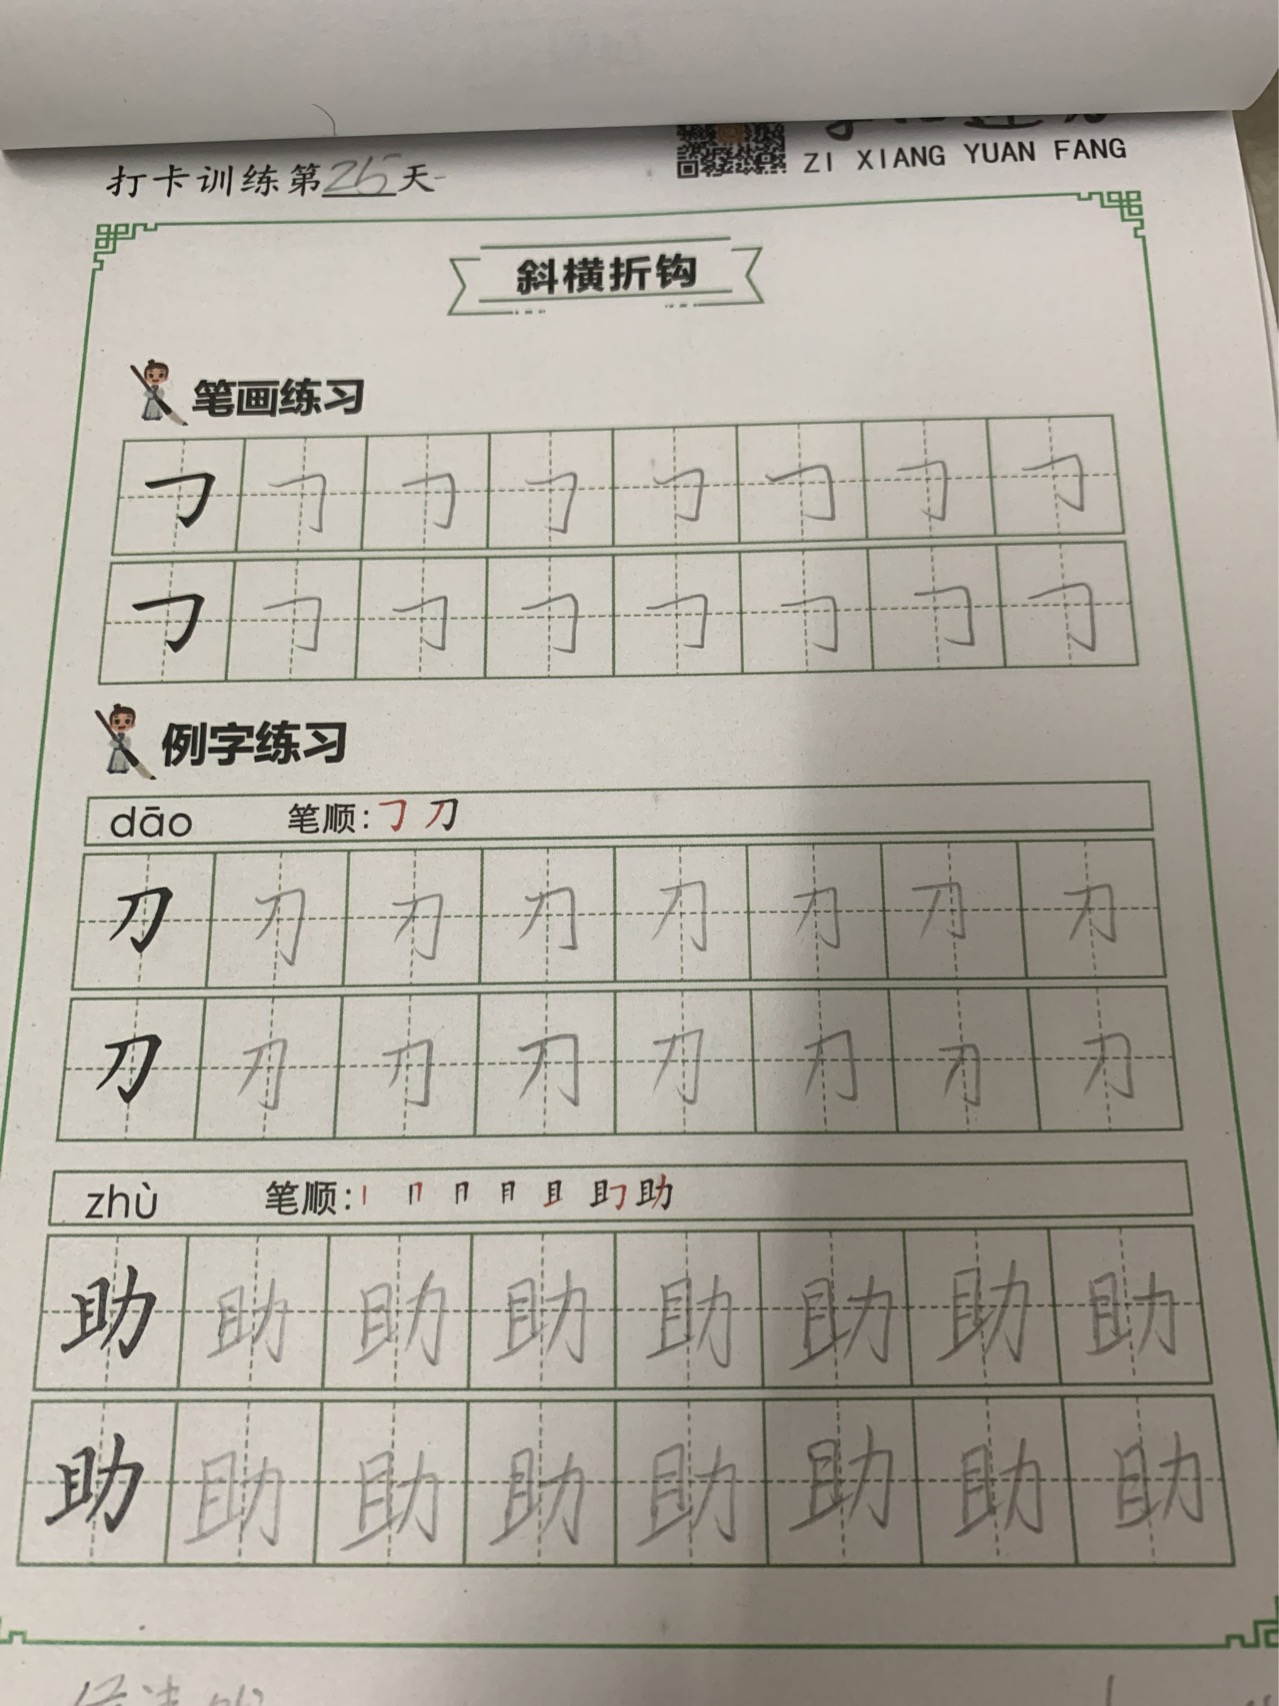 ZI XIANG YUAN FANG
打卡训练第25天
斜横折钩
笔画练习
㇆ ㇆ ㇆ ㇆ ㇆ ㇆ ㇆ ㇆
㇆ ㇆ ㇆ ㇆ ㇆ ㇆ ㇆ ㇆
例字练习
dāo 笔顺:㇆ 刀
刀 刀 刀 刀 刀 刀 刀 刀
刀 刀 刀 刀 刀 刀 刀 刀
zhù 笔顺:丨 冂 月 且 助
助 助 助 助 助 助 助 助
助 助 助 助 助 助 助 助